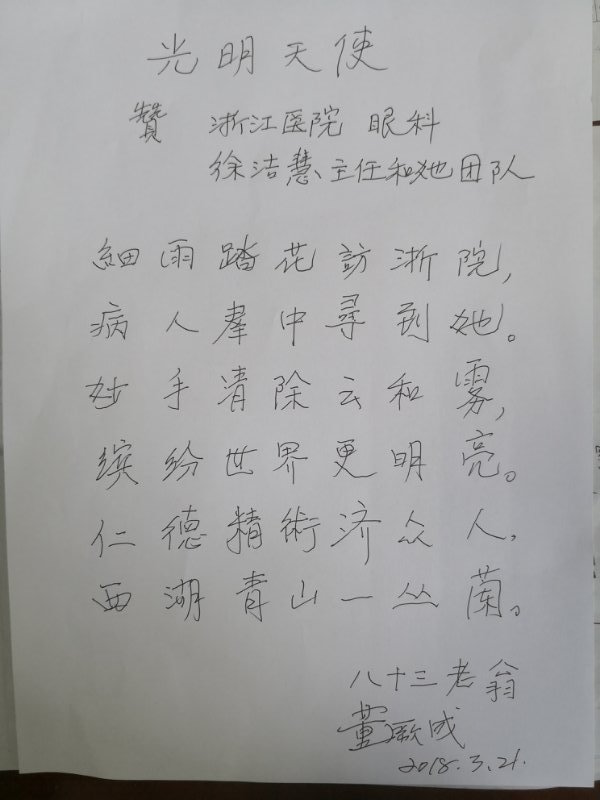 光明天使
贊 浙江医院 眼科
徐洁慧主任和她团队
細雨踏花訪浙院,
病人羣中尋到她。
妙手清除云和雾,
缤纷世界更明亮。
仁德精術济众人,
西湖青山一丛蘭。
八十三老翁
董成
2018.3.21.